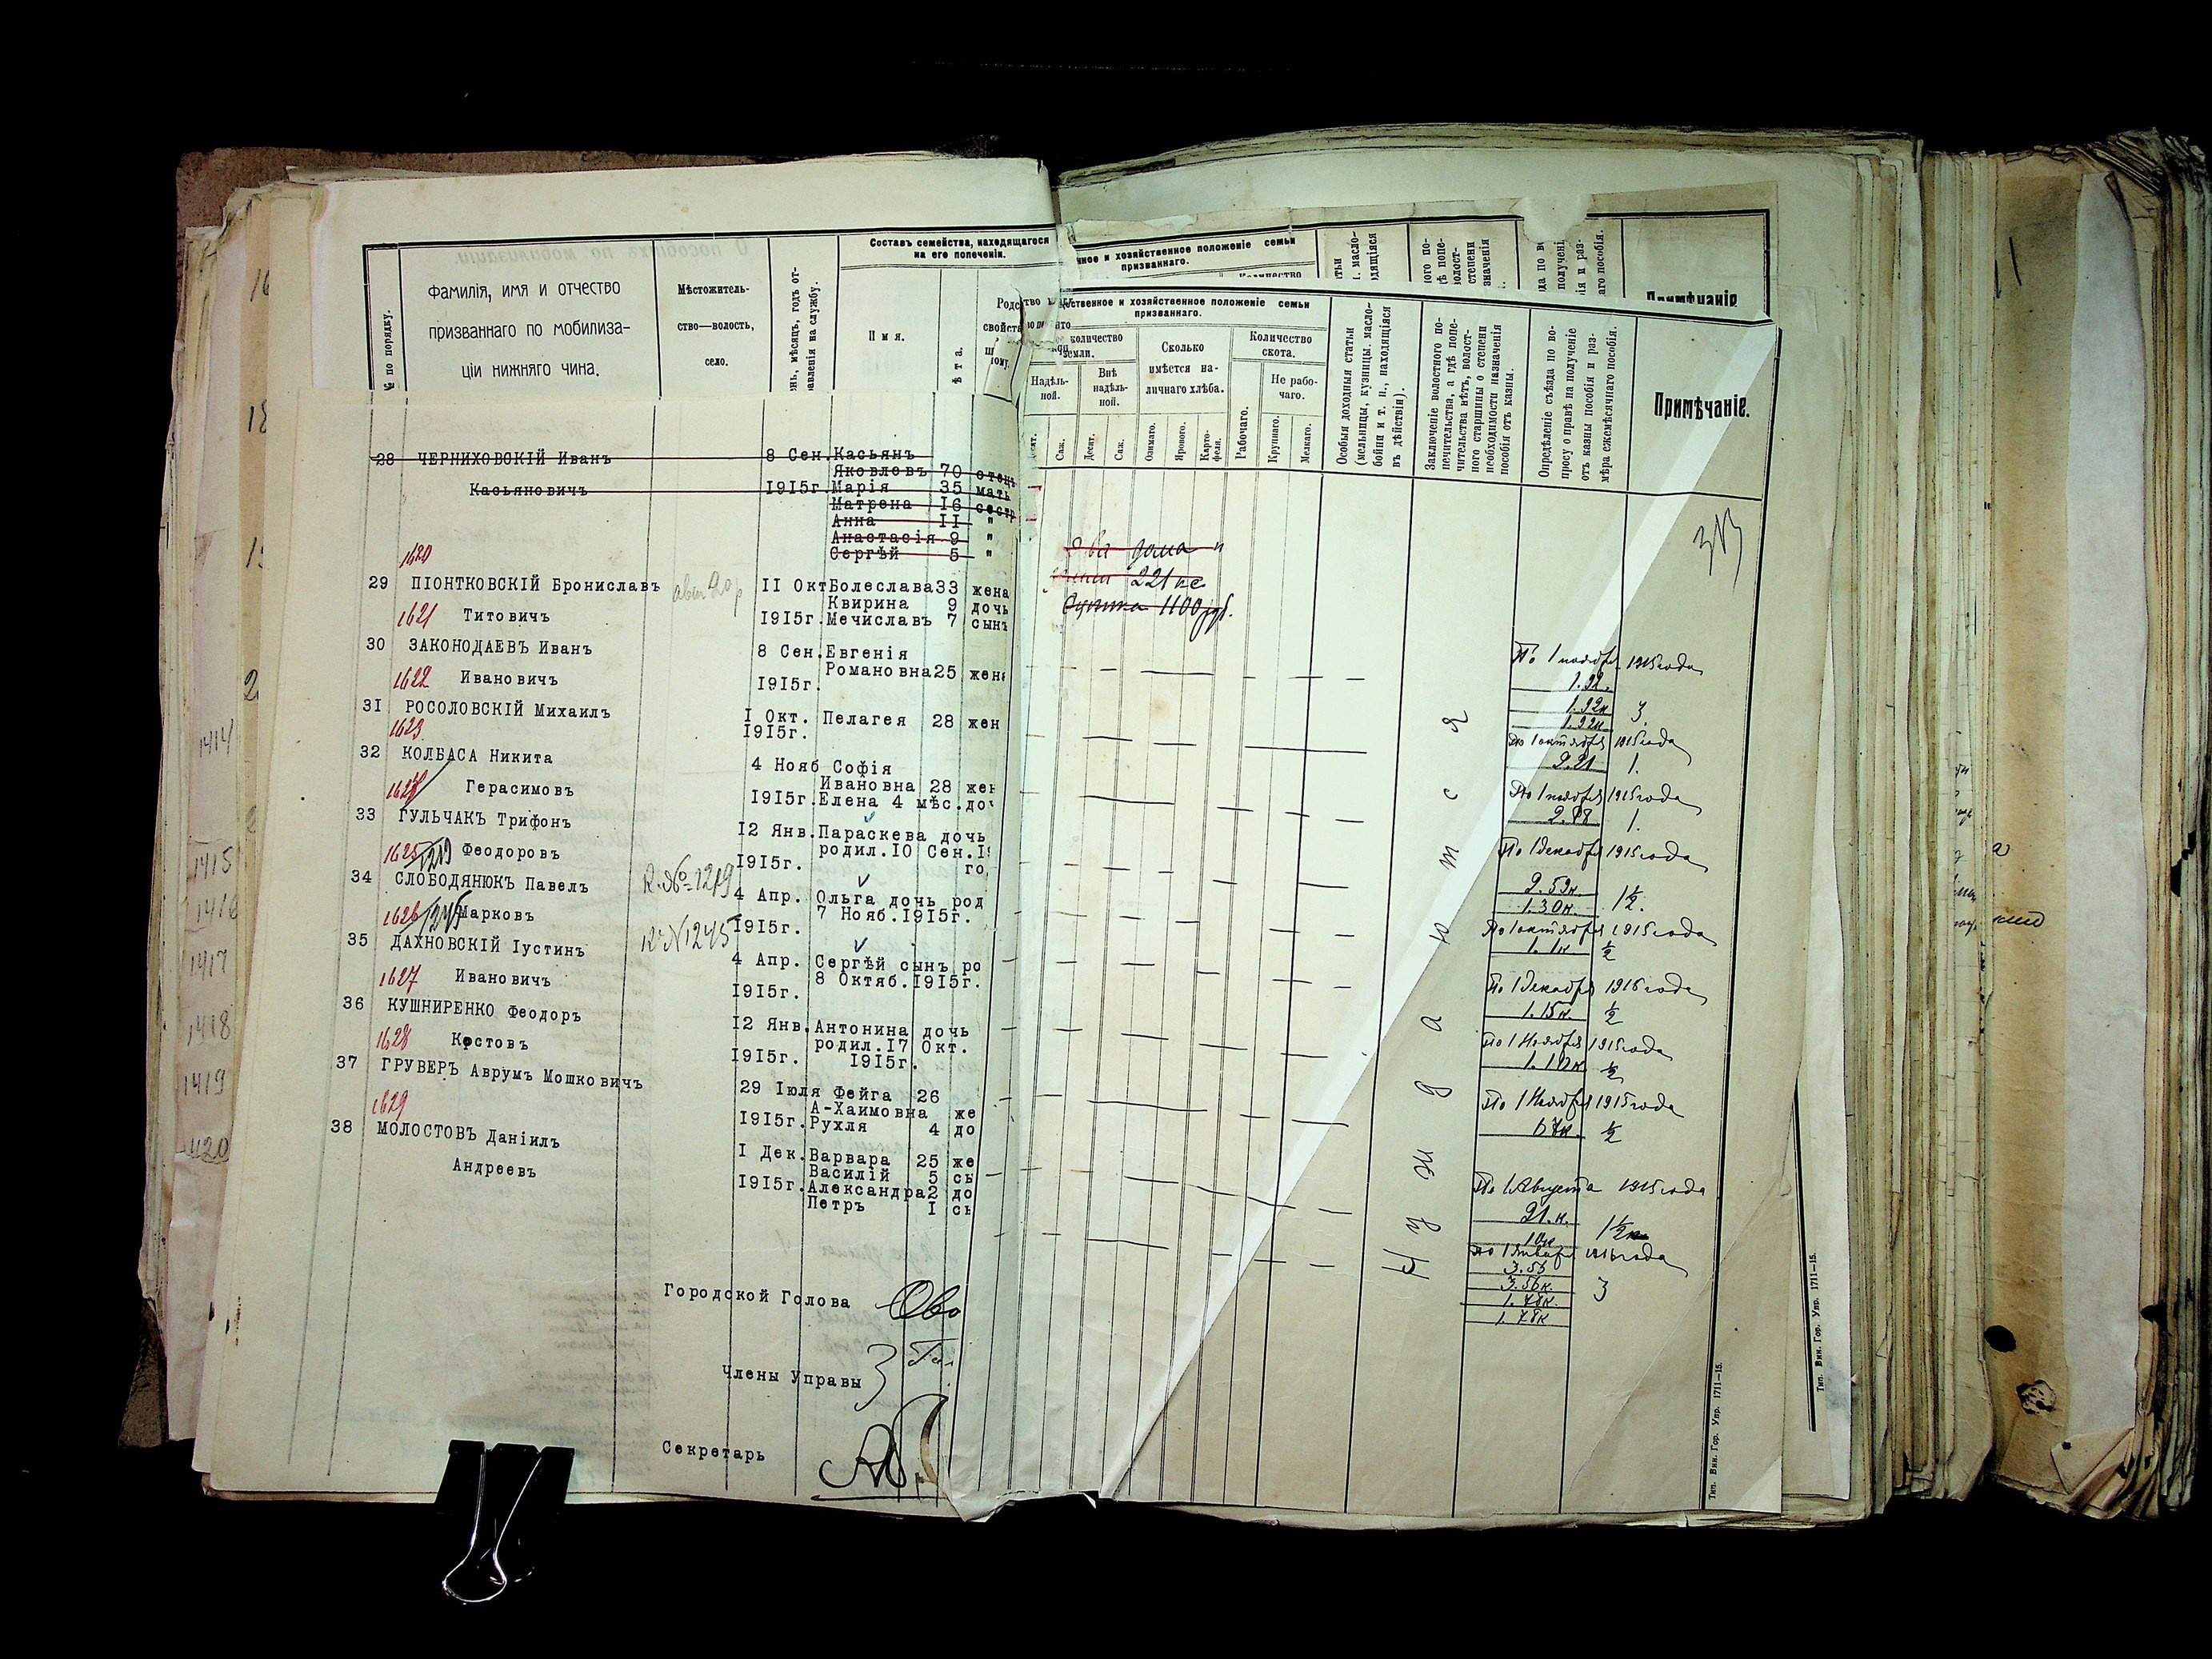 Составъ семейства, находящагося
на его попеченіи.
№ по порядку.
Фамилія, имя и отчество
призваннаго по мобилиза-
ціи нижняго чина.
Мѣстожитель-
ство—волость,
село.
мѣсяцъ, годъ от-
правленія на службу.
Имя.
Лѣта.
28 ЧЕРНИХОВСКІЙ Иванъ 8 Сен. Касьянъ
Яковлевъ 70 отецъ
Касьяновичъ 1915г. Марія 35 мать
Матрена 16 сестр
Анна 11 "
Анастасія 9 "
Сергѣй 5 "
1620
29 ПІОНТКОВСКІЙ Брониславъ 11 Окт Болеслава 33 жена
Квирина 9 дочь
1621 Титовичъ 1915г. Мечиславъ 7 сынъ
30 ЗАКОНОДАЕВЪ Иванъ 8 Сен. Евгенія
Романовна 25 жена
1622 Ивановичъ 1915г.
31 РОСОЛОВСКІЙ Михаилъ 1 Окт. Пелагея 28 жен
1623 1915г.
32 КОЛБАСА Никита 4 Нояб Софія
Ивановна 28 жен
Герасимовъ 1915г. Елена 4 мѣс. доч
33 ГУЛЬЧАКЪ Трифонъ 12 Янв. Параскева дочь
родил. 10 Сен. 19
1625 1219 Феодоровъ 1915г. го.
К. № 1219
34 СЛОБОДЯНЮКЪ Павелъ 4 Апр. Ольга дочь род
7 Нояб. 1915г.
1626 1245 Марковъ 1915г.
К. № 1245
35 ДАХНОВСКІЙ Іустинъ 4 Апр. Сергѣй сынъ ро
8 Октяб. 1915г.
1627 Ивановичъ 1915г.
36 КУШНИРЕНКО Феодоръ 12 Янв. Антонина дочь
родил. 17 Окт.
1628 Костовъ 1915г. 1915г.
37 ГРУВЕРЪ Аврумъ Мошковичъ 29 Іюля Фейга 26
А-Хаимовна же
1629 1915г. Рухля 4 до
38 МОЛОСТОВЪ Даніилъ 1 Дек. Варвара 25 же
Василій 5 сы
Андреевъ 1915г. Александра 2 до
Петръ 1 сы
Городской Голова
Члены Управы
Секретарь
ное и хозяйственное положеніе семьи
призваннаго.
Примѣчаніе
ственное и хозяйственное положеніе семьи
призваннаго.
количество
земли.
Надѣль-
ной.
Внѣ
надѣль-
ной.
Сколько
имѣется на-
личнаго хлѣба.
Количество
скота.
Рабочаго.
Не рабо-
чаго.
Саж.
Десят.
Саж.
Озимаго.
Ярового.
Карто-
феля.
Крупнаго.
Мелкаго.
Особыя доходныя статьи
(мельницы, кузницы, масло-
бойни и т. п., находящіяся
въ дѣйствіи).
Заключеніе волостного по-
печительства, а гдѣ попе-
чительства нѣтъ, волост-
ного старшины о степени
необходимости назначенія
пособія отъ казны.
Опредѣленіе съѣзда по во-
просу о правѣ на полученіе
отъ казны пособія и раз-
мѣра ежемѣсячнаго пособія.
Примѣчаніе.
313
Два дома и
221 кс
1100 руб.
Нуждаются
По 1 ноября 1915 года
1.92.
1.92к 3.
1.92к.
По 1 октября 1915 года
2.21 1.
По 1 ноября 1915 года
1.
По 1 декабря 1915 года
2.59к.
1.30к. 1½.
По 1 октября 1915 года
1.1к. ½
По 1 декабря 1915 года
1.15к. ½
По 1 Ноября 1915 года
½
По 1 Ноября 1915 года
½
По 1 Августа 1915 года
21.к.
1½
По 1 Января 1916 года
3.56
3.56к. 3
1.78к.
1.78к
Тип. Вин. Гор. Упр. 1711—15.
Тип. Вин. Гор. Упр. 1711—15.
1414
1415
1416
1417
1418
1419
1420